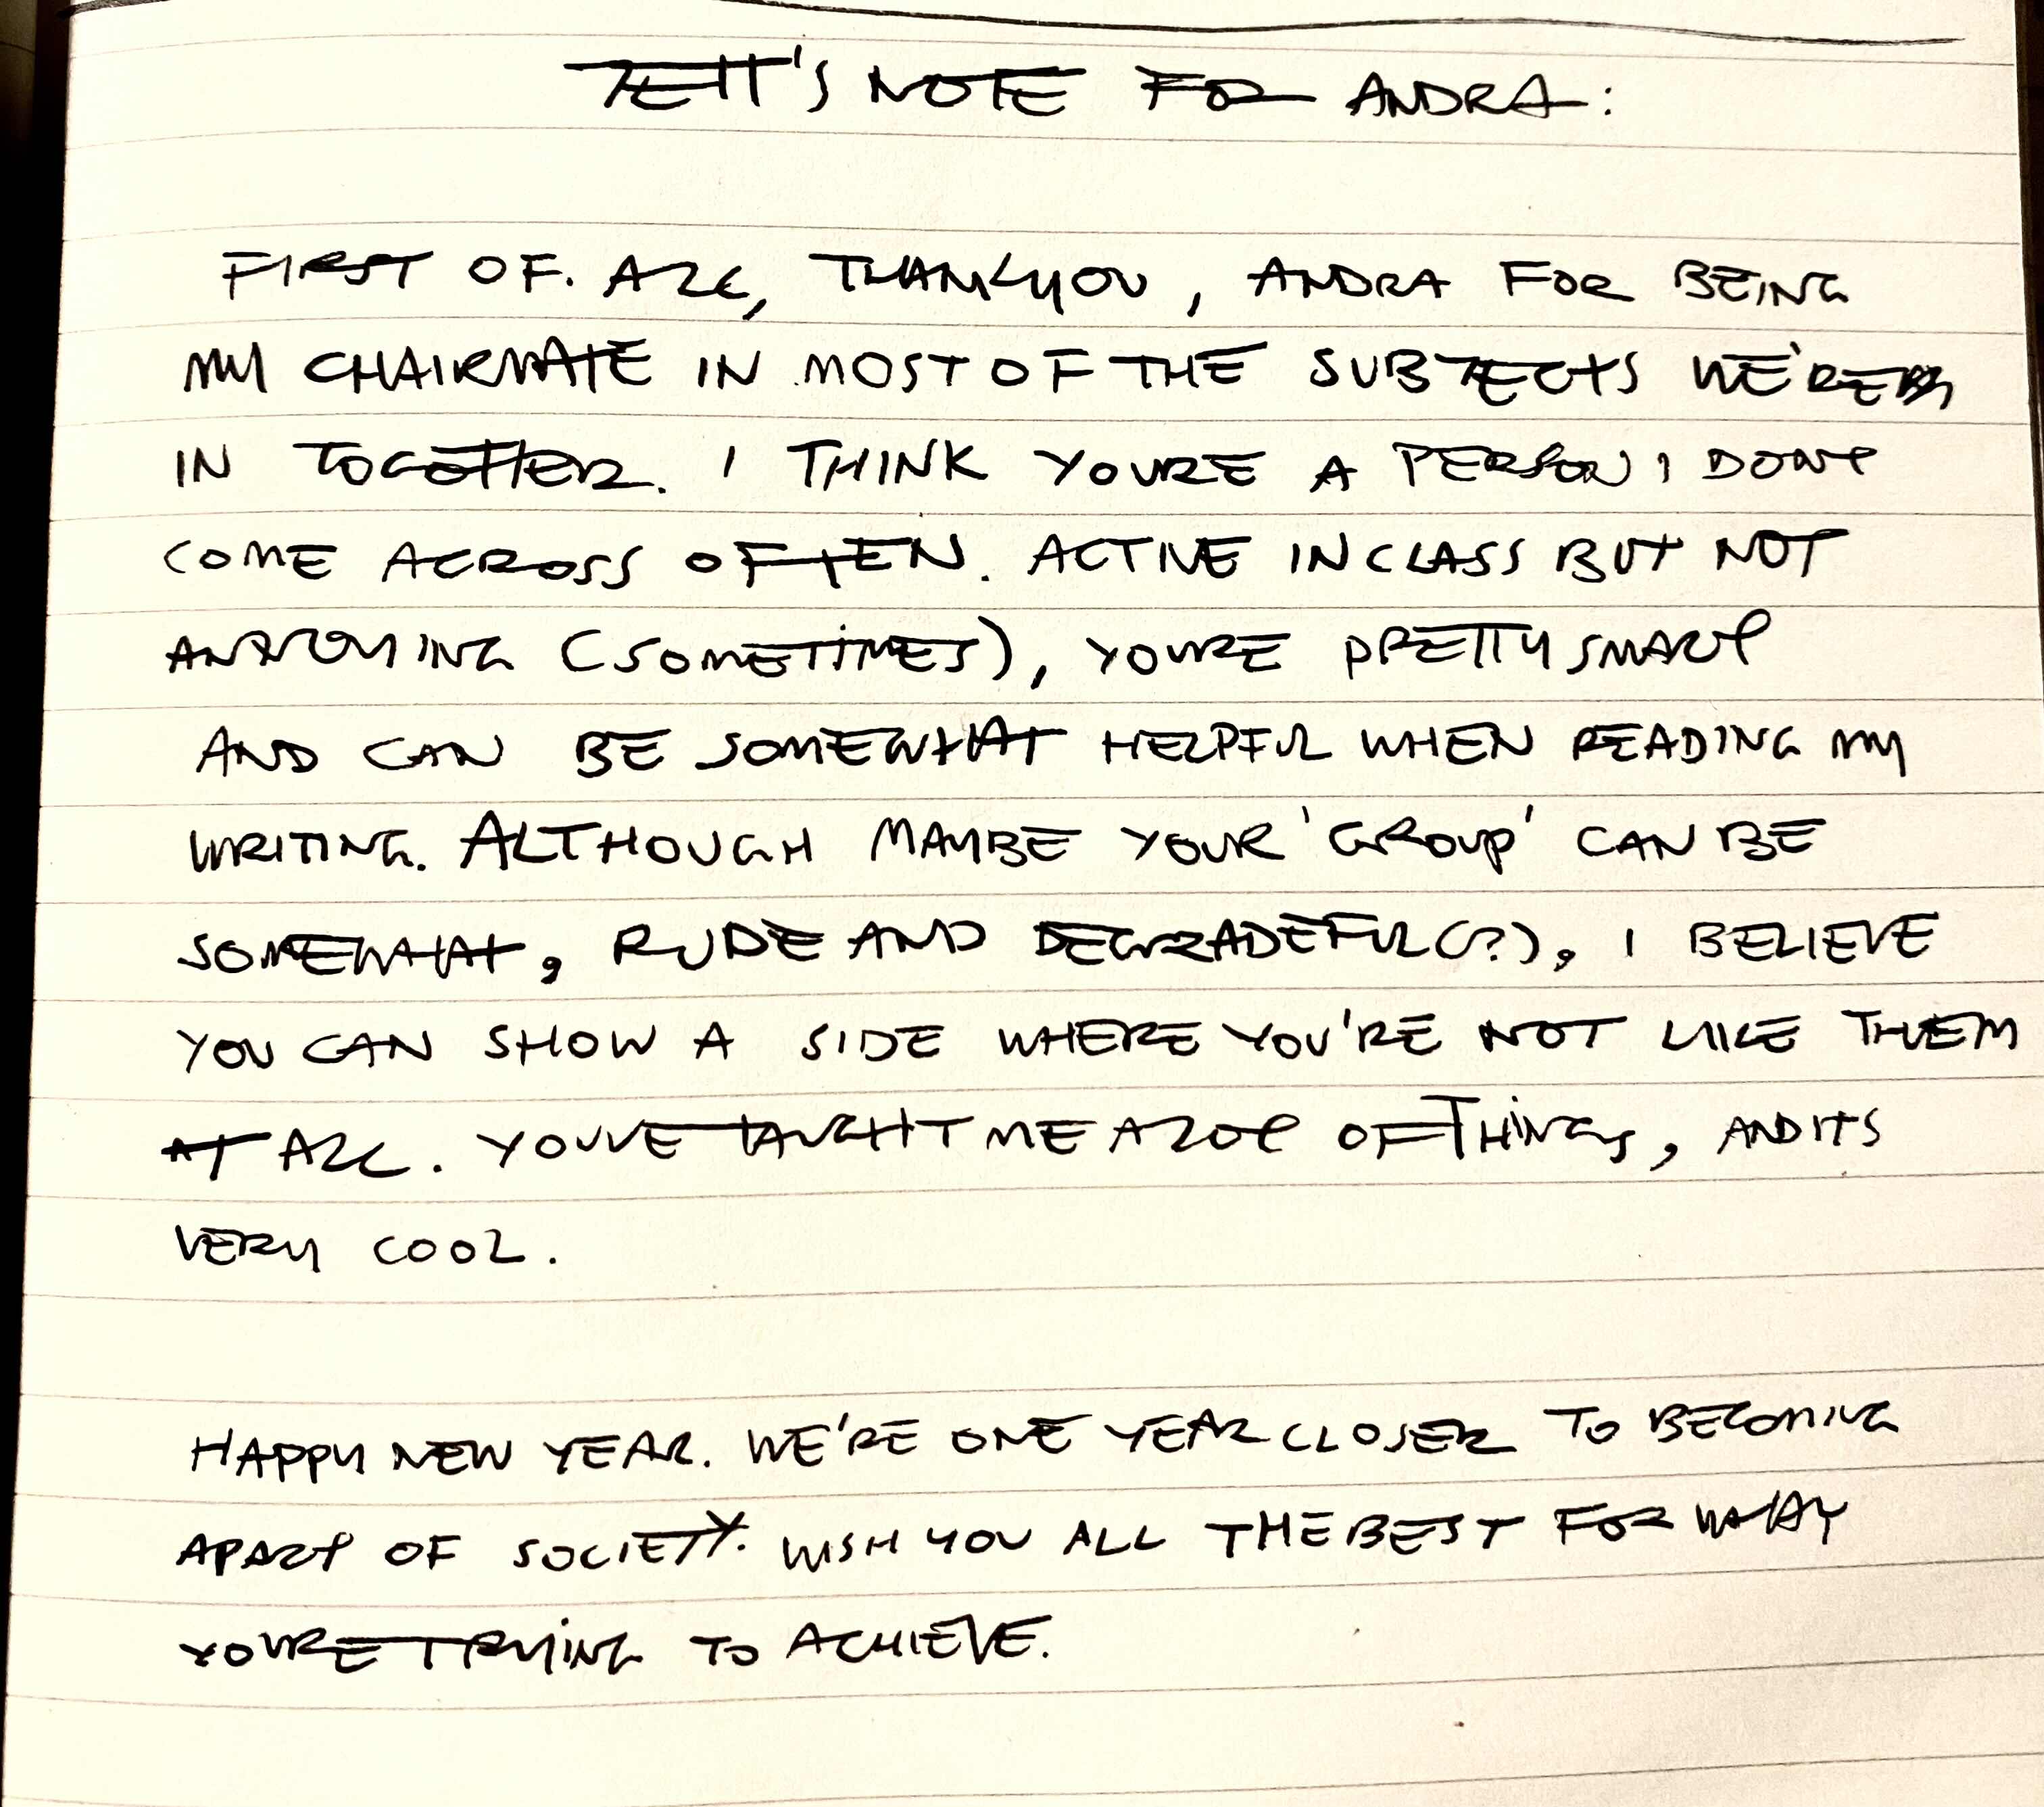 NOTE FOR ANDRA:
FIRST OF. ALL, THANKYOU, ANDRA FOR BEING
MY CHAIRMATE IN MOST OF THE SUBJECTS WE'RE
IN TOGETHER. I THINK YOURE A PERSON I DONT
COME ACROSS OFTEN. ACTIVE IN CLASS BUT NOT
ANNOYING (SOMETIMES), YOURE PRETTY SMART
AND CAN BE SOMEWHAT HELPFUL WHEN READING MY
WRITING. ALTHOUGH MAYBE YOUR 'GROUP' CAN BE
SOMEWHAT, RUDE AND DEGRADEFUL(?), I BELIEVE
YOU CAN SHOW A SIDE WHERE YOU'RE NOT LIKE THEM
AT ALL. YOUVE TAUGHT ME A LOT OF THINGS, AND ITS
VERY COOL.
HAPPY NEW YEAR. WE'RE ONE YEAR CLOSER TO BECOMING
APART OF SOCIETY. WISH YOU ALL THE BEST FOR
YOURE TRYING TO ACHIEVE.